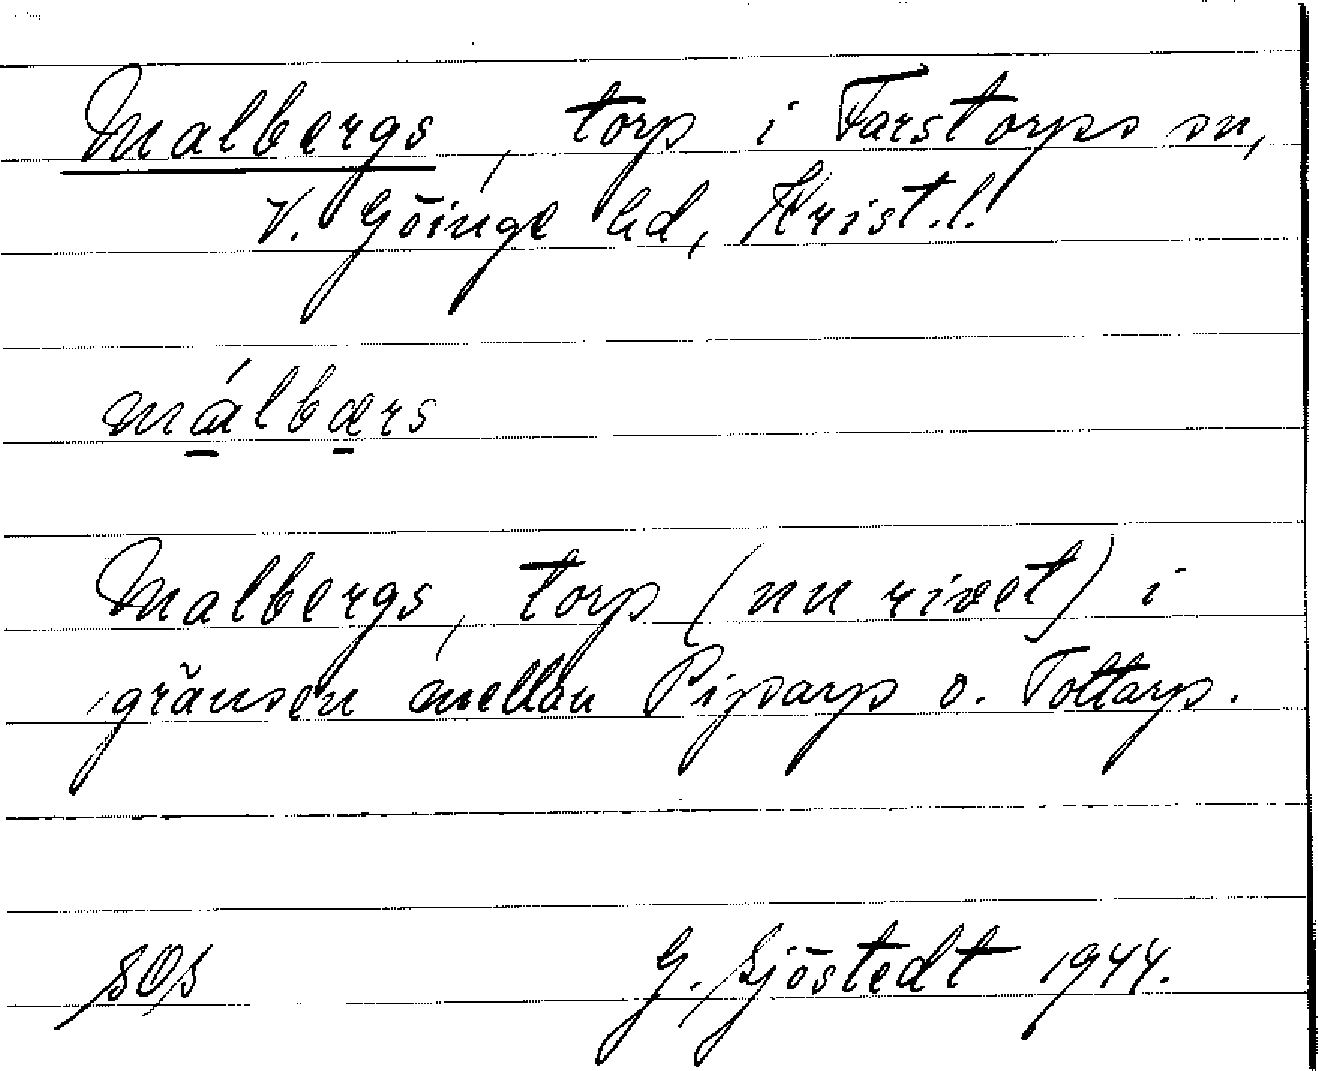 Malbergs, torp i Farstorps sn,
V. Göinge hd, Krist.l.
málbærs
Malbergs, torp (nu rivet) i
gränsen mellan Pipsarp o. Tottarp.
SOS G. Sjöstedt 1944.